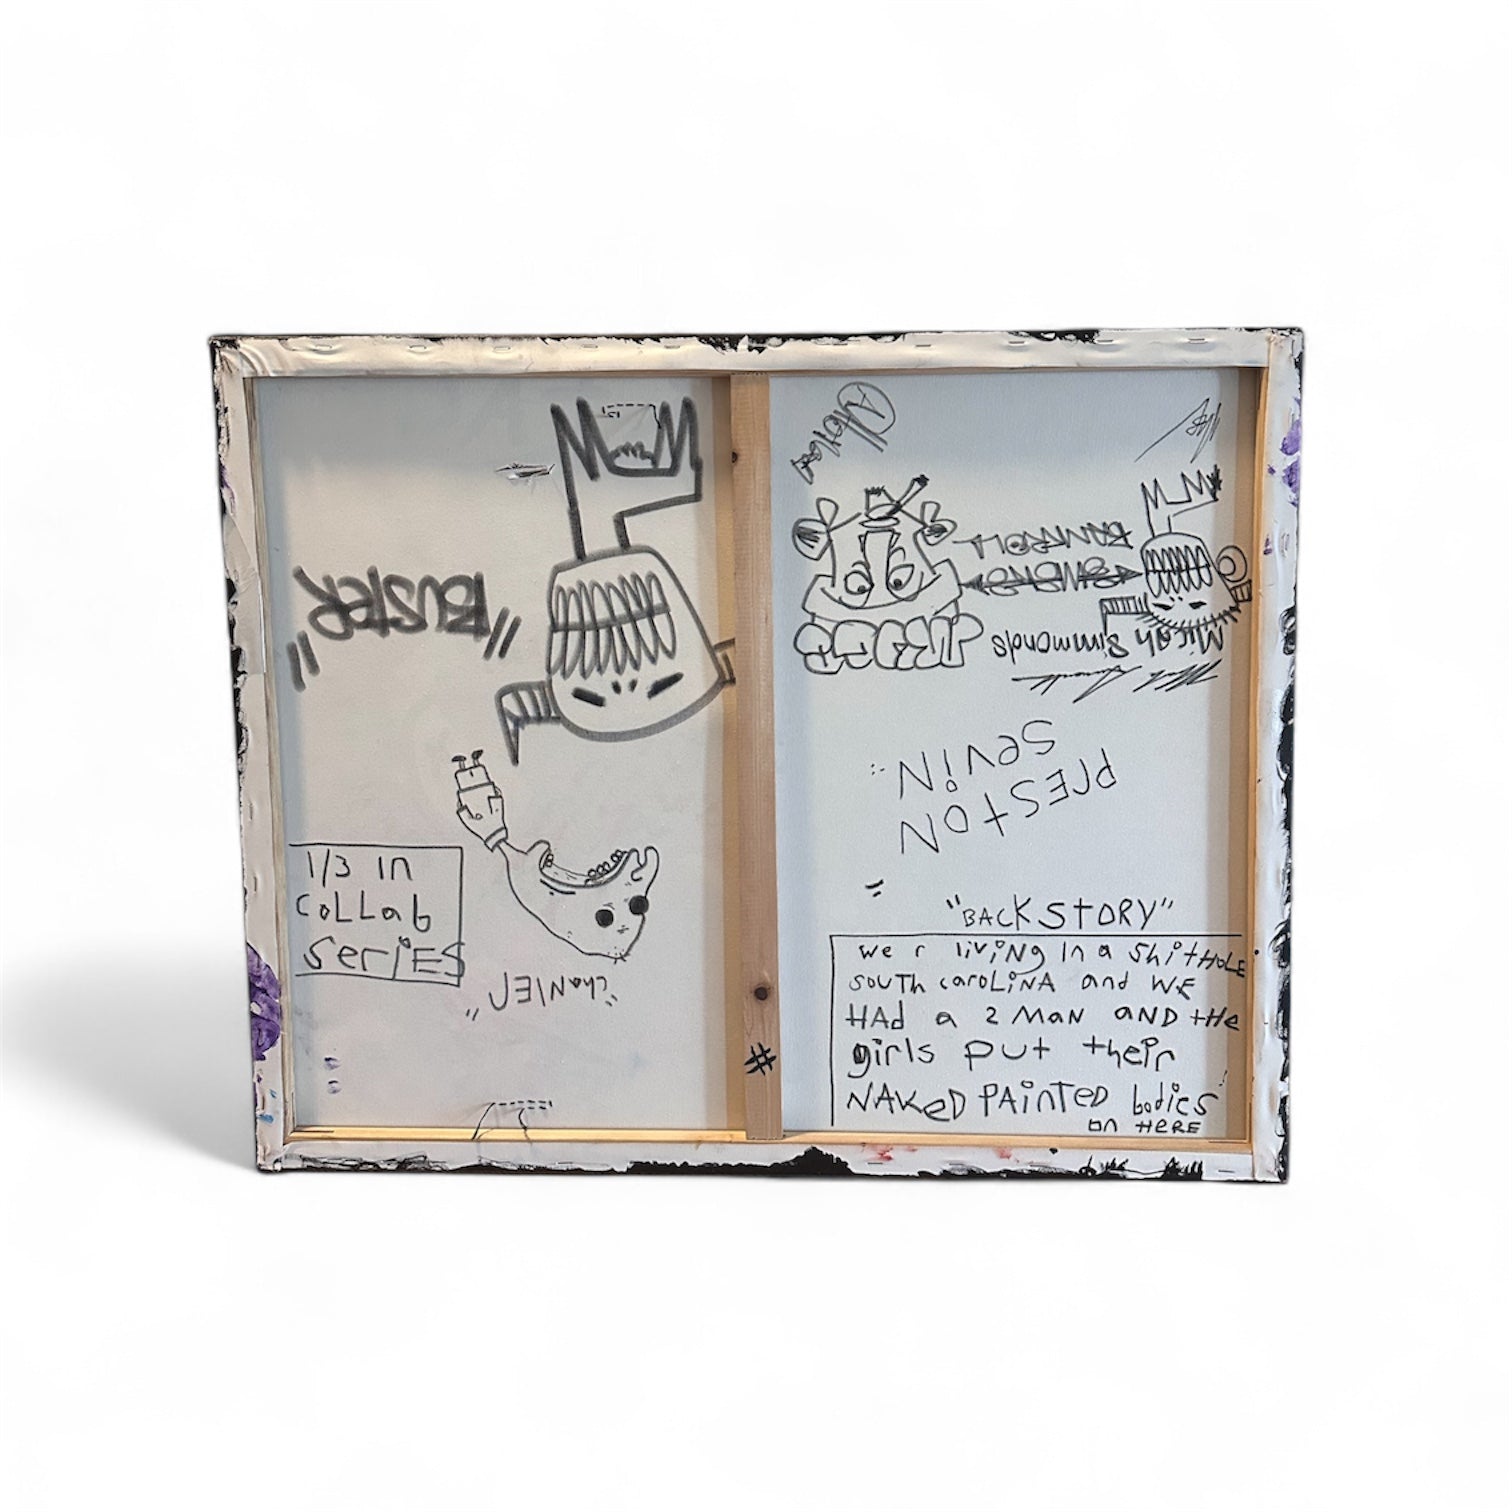 "BUSTER"
1/3 in
coLLab
SeriES
"chaNlEr"
Micah Simmonds
PrESTON
SeviN
"BACKSTORY"
we r liviNg In a ShitHOLE
SouTh caroLiNA and WE
HAd a 2 MaN aND tHe
girls put their
NAKeD PAiNTED bodies
on HERE
#